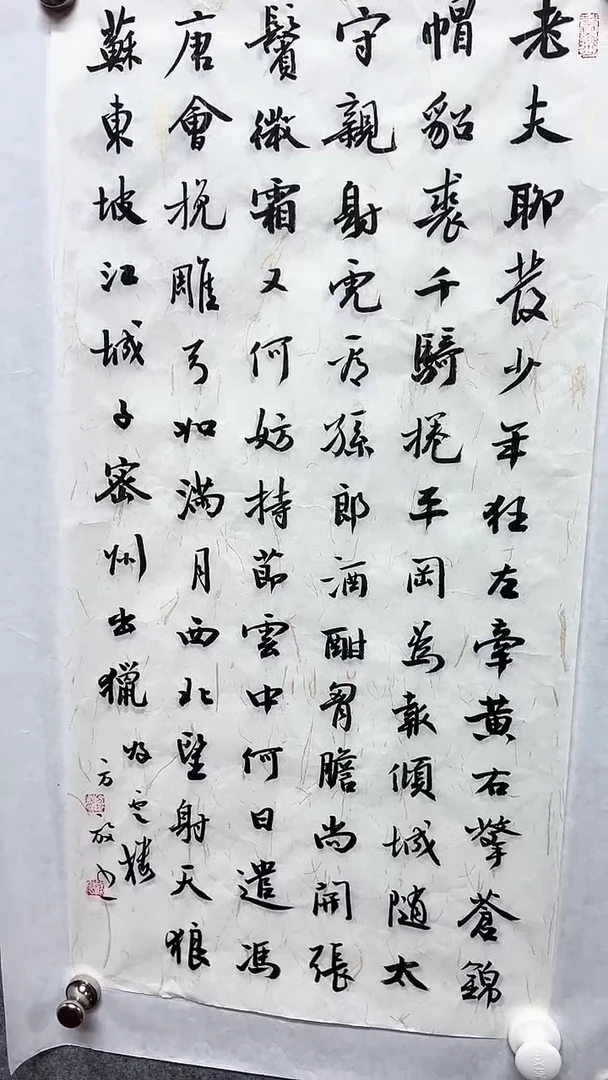 老夫聊發少年狂左牽黃右擎蒼錦
帽貂裘千騎捲平岡為報傾城隨太
守親射虎看孫郎酒酣胷膽尚開張
鬢微霜又何妨持節雲中何日遣馮
唐會挽雕弓如滿月西北望射天狼
蘇東坡江城子密州出獵
樓
方